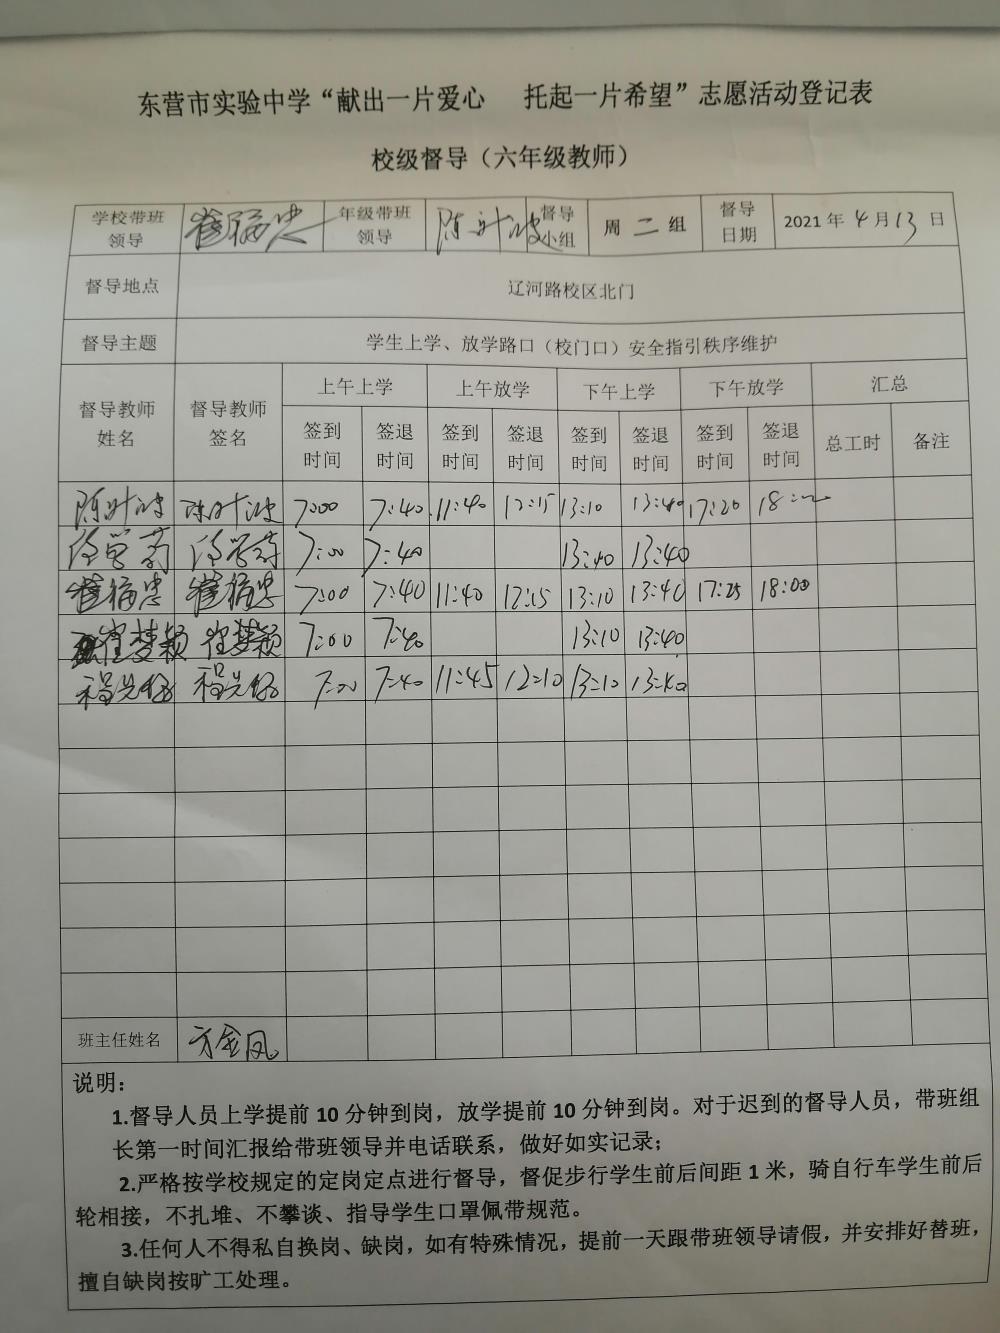 东营市实验中学“献出一片爱心 托起一片希望”志愿活动登记表
校级督导（六年级教师）
学校带班领导 崔福忠 年级带班领导 陈叶波 督导小组 周二组 督导日期 2021年4月13日
督导地点 辽河路校区北门
督导主题 学生上学、放学路口（校门口）安全指引秩序维护
督导教师姓名 督导教师签名 上午上学 上午放学 下午上学 下午放学 汇总
签到时间 签退时间 签到时间 签退时间 签到时间 签退时间 签到时间 签退时间 总工时 备注
陈叶波 陈叶波 7:00 7:40 11:40 12:15 13:10 13:40 17:20 18:
7:00 7:40 13:40 13:40
崔福忠 崔福忠 7:00 7:40 11:40 12:15 13:10 13:40 17:25 18:00
崔梦颖 崔梦颖 7:00 7:40 13:10 13:40
7:00 7:40 11:45 12:10 13:10 13:40
班主任姓名 方金凤
说明：
1.督导人员上学提前10分钟到岗，放学提前10分钟到岗。对于迟到的督导人员，带班组
长第一时间汇报给带班领导并电话联系，做好如实记录；
2.严格按学校规定的定岗定点进行督导，督促步行学生前后间距1米，骑自行车学生前后
轮相接，不扎堆、不攀谈、指导学生口罩佩带规范。
3.任何人不得私自换岗、缺岗，如有特殊情况，提前一天跟带班领导请假，并安排好替班，
擅自缺岗按旷工处理。